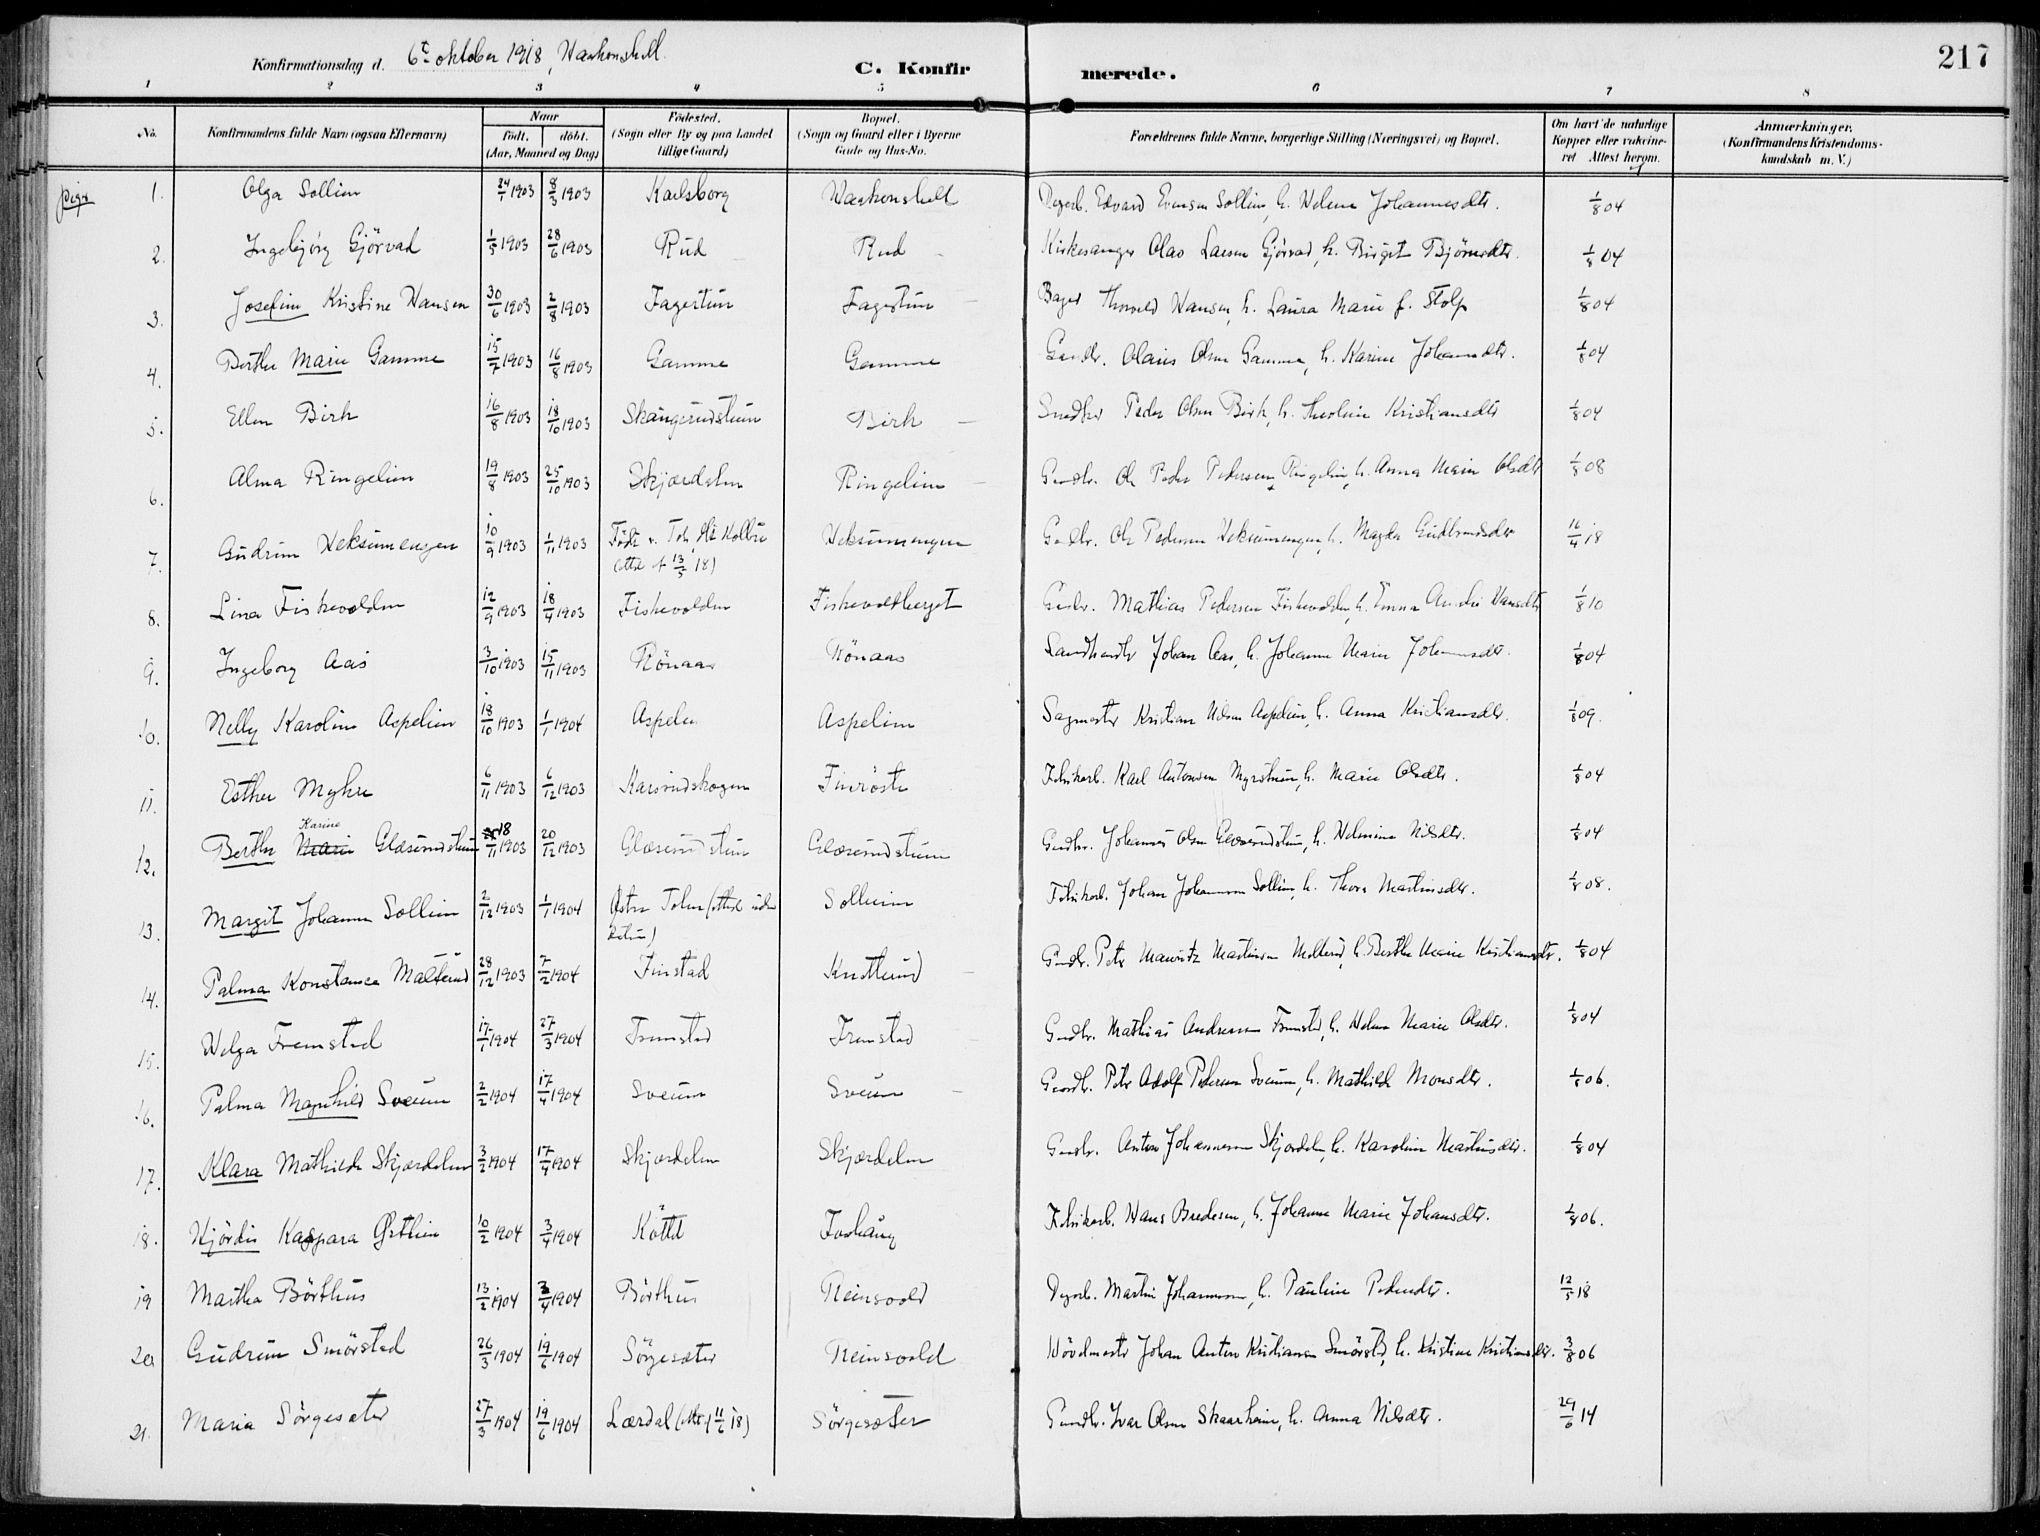 217
Konfirmationsdag d. 6te oktober 1918, Haakenshell
C. Konfirmerede.
1 2 3 4 5 6 7 8
No. Konfirmandens fulde Navn (ogsaa Efternavn) Naar født. døbt. (Aar, Maaned og Dag) Fødested. (Sogn eller By og paa Landet tillige Gaard) Bopæl. (Sogn og Gaard eller i Byerne Gade og Hus-No. Forældrenes fulde Navne, borgerlige Stilling (Næringsvei) og Bopæl. Om havt de naturlige Kopper eller vaccineret Attest herom. Anmærkninger. (Konfirmandens Kristendomskundskab m. V.)
Piger 1. Olga Sollien 24/1 1903 8/3 1903 Karlsborg Edvard Evensen Sollien, h. Helene Johannesdtr. 1/8 04
2. Ingebjörg Gjörvad 1/5 1903 28/6 1903 Rud Rud Kirkesanger Olav Larsen Gjörvad, h. Birgit Björnsdtr. 1/8 04
3. Josefine Kristine Hansen 30/6 1903 2/8 1903 Fagertun Fagertun Bager Thorvald Hansen, h. Laura Marie f. Stolp 1/8 04
4. Berthe Marie Gamme 15/7 1903 16/8 1903 Gamme Gamme Gardbr. Olaus Olsen Gamme, h. Karine Johansdtr. 1/8 04
5. Ellen Birk 16/8 1903 18/10 1903 Skaugerudstuen Birk Snedker Peder Olsen Birk, h. Kristiansdtr 1/8 04
6. Alma Ringelien 19/8 1903 25/10 1903 Skjærdalen Ringelien Gardbr. Ole Peder Pedersen Ringelien, h. Anna Marie Olsdtr 1/8 08
7. Gudrun Heksumengen 10/9 1903 1/11 1903 Födt v. Kolbu (att. af 13/5 18) Heksumengen Gardbr. Ole Pedersen Heksumengen, h. Magda Gudbrandsdtr 16/4 18
8. Lina Fiskevolden 12/9 1903 18/4 1903 Fiskevolden Fiskevoldberget Gardbr. Mathias Pedersen Fiskevolden, h. Emma Hansdtr 1/8 10
9. Ingeborg Aas 3/10 1903 15/11 1903 Rönaas Rönaas Landhandler Johan Aas, h. Johanne Marie Johannesdtr. 1/8 04
10. Nelly Karoline Aspelien 18/10 1903 1/1 1904 Aspelien Aspelien Sagmester Kristian Nilsen Aspelien, h. Anna Kristiansdtr. 1/8 09.
11. Esther Myhre 6/11 1903 6/12 1903 Karsrudskogen Finröste Fabrikarb. Karl Antonsen Myrstuen, h. Marie Olsdtr. 1/8 04
12. Berthe Marie Karine Glæserudstuen 18/11 1903 20/12 1903 Glæserudstuen Glæserudstuen Gardbr. Johannes Olsen Glæserudstuen, h. Helmine Nilsdtr. 1/8 04
13. Margit Johanne Sollien 2/12 1903 1/1 1904 Östre Toten Sollien Fabrikarb. Johan Johannesen Sollien, h. Thora Martinsdtr. 1/8 08.
14. Palma Konstance Mælterud 28/12 1903 7/2 1904 Finstad Knutlund Gardbr. Peter Mauritz Martinsen Mælterud, h. Berthe Marie Kristiansdtr. 1/8 04
15. Helga Fremstad 17/1 1904 27/3 1904 Fremstad Fremstad Gardbr. Mathias Andersen Fremstad, h. Helene Marie Olsdtr. 1/8 04
16. Palma Magnhild Sveum 2/2 1904 17/4 1904 Sveum Sveum Gardbr. Peter Adolf Pedersen Sveum, h. Mathilde Monsdtr. 1/8 06.
17. Klara Mathilde Skjærdalen 3/2 1904 17/4 1904 Skjærdalen Skjærdalen Gardbr. Anton Johannesen Skjærdalen, h. Karoline Mathisdtr. 1/8 04
18. Hjördis Kaspara Östlien 10/2 1904 3/4 1904 Fabrikarb. Hans Bredesen, h. Johanne Marie Johansdtr. 1/8 06.
19 Martha Börthus 13/2 1904 3/4 1904 Börthus Reinsvold Martin Johannesen, h. Pauline Pedersdtr. 12/5 18
20 Gudrun Smörstad 26/3 1904 19/6 1904 Sörgesæter Reinsvold Hövelmester Johan Anton Kristiansen Smörstad, h. Kristine Kristiansdtr. 3/8 06
21. Maria Sörgesæter 27/3 1904 19/6 1904 Lærdal (att. af 11/6 18) Sörgesæter Gardbr. Ivar Olsen Skaarheim, h. Anna Nilsdtr. 29/6 14